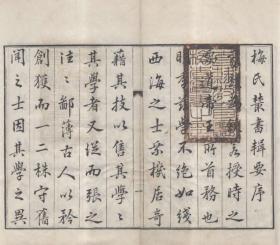 梅氏叢書輯要序
授時之
王所首務也
學不絕如綫
西海之士乘機居奇
藉其技以售其學〻
其學者又從而張之
往〻鄙薄古人以矜
創獲而一二株守舊
聞之士因其學之異